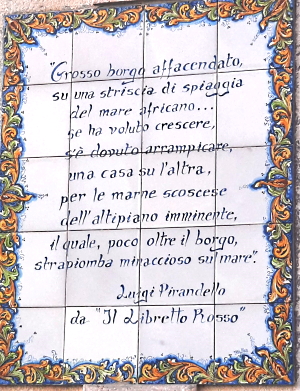 "Grosso borgo affacendato,
su una striscia di spiaggia
del mare africano...
se ha voluto crescere,
s'è dovuto arrampicare,
una casa su l'altra,
per le marne scoscese
dell'altipiano imminente,
il quale, poco oltre il borgo,
strapiomba minaccioso sul mare".
Luigi Pirandello
da "Il Libretto Rosso"